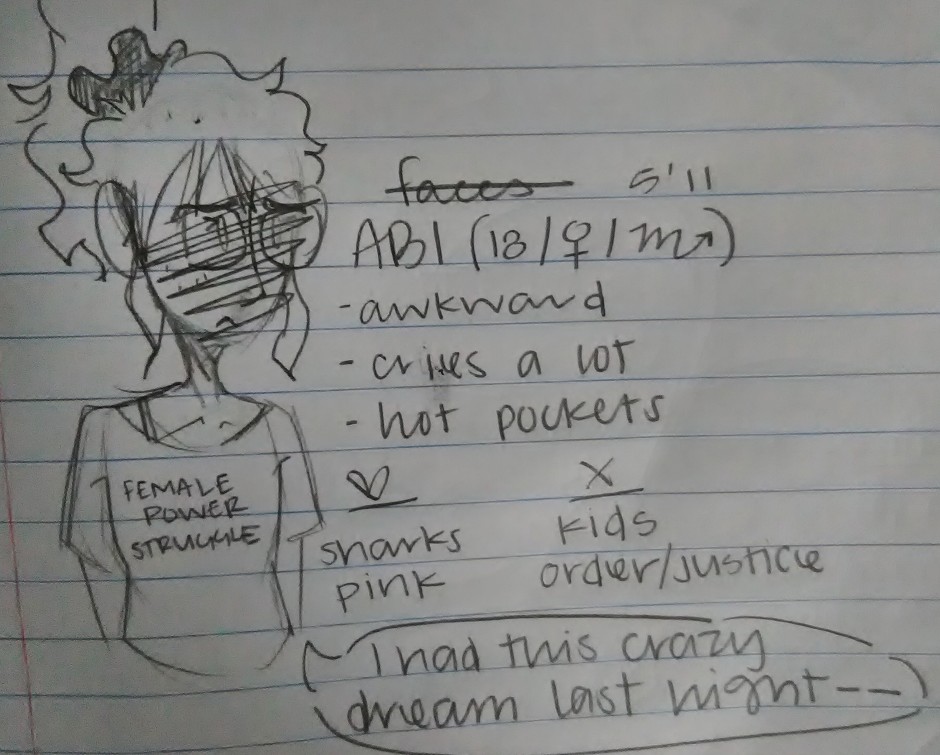 faces 5'11
ABI (18/♀/m↗)
-awkward
- cries a lot
- hot pockets
♡ X
sharks kids
pink order/justice
FEMALE
POWER
STRUGGLE
I had this crazy
dream last night--